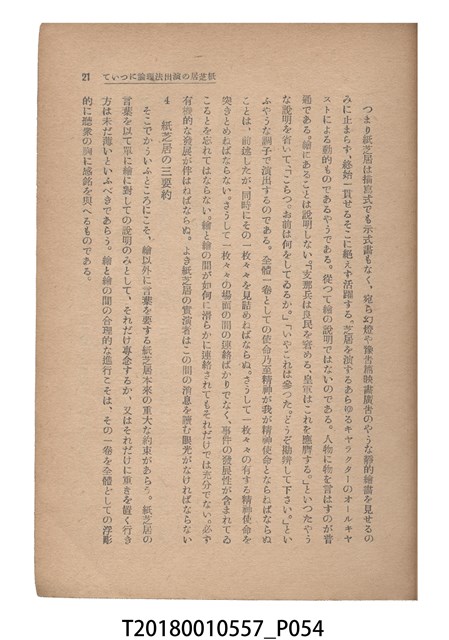 紙芝居の演出法概論について 21
つまり紙芝居は描寫式でも示式畫もなく、宛ら幻燈や豫告篇映畫廣告のやうな靜的繪畫を見せるの
みに止まらず、終始一貫せるそこに絕えず活躍する。芝居を演するあらゆるキャラクターのオールキャ
ストによる動的ものであるやうである。從つて繪の說明ではないのである。人物に物を言はすのが普
通である。繪にあることは說明しない。『支那兵は良民を窘める、皇軍はこれを膺懲する。』といつたやう
な說明を省いて、『こらつ。お前は何をしてゐるか。』『いやこれは參つた。どうぞ勘辨して下さい。』とい
ふやうな調子で演出するのである。全體一卷としての使命乃至精神が我が精神使命とならねばならぬ
ことは、前述したが、同時にその一枚々々を見詰めねばならぬ。さうして一枚々々の有する精神使命を
突きとめねばならない。さうして一枚々々の場面の間の連絡ばかりでなく、事件の發展性が含まれてゐ
ることを忘れてはならない。繪と繪の間が如何に滑らかに連絡されてもそれだけでは充分でない。必ず
有機的な發展が伴はねばならぬ。よき紙芝居の實演者はこの間の消息を讀む眼光がなければならない
4 紙芝居の三要約
そこでかういふところにこそ、繪以外に言葉を要する紙芝居本來の重大な約束があらう。紙芝居の
言葉を以て單に繪に對しての說明のみとして、それだけ專念するか、又はそれだけに重きを置く行き
方は未だ薄いといふべきであらう。繪と繪の間の合理的な進行こそは、その一卷を全體としての浮彫
的に聽衆の胸に感銘を與へるものである。
T20180010557_P054